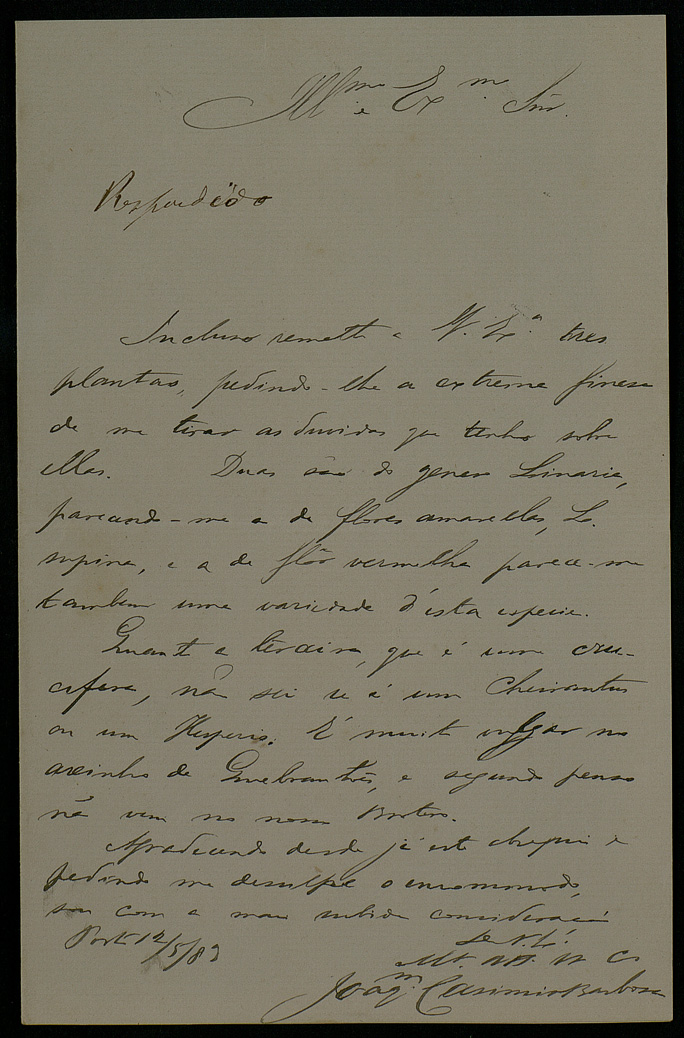 Illmo e Exmo Snr.
Respondido
Incluso remetto a V. Exª tres
plantas, pedindo-lhe a extrema finesa
de me tirar as duvidas que tenho sobre
ellas. Duas são do genero Linaria,
parecendo-me a de flores amarellas, L.
supina, e a de flôr vermelha parece-me
tambem uma variedade d'esta especie.
Quanto a terceira, que é uma cru-
cifera, não sei se é um Cheirantus
ou um Hesperis. É muito vulgar no
areinho de Quebrantões, e segundo penso
não vem no nosso Brotero.
Agradecendo desde já este obsequio e
pedindo me desculpe o encommodo,
sou com a mais subida consideração
Porto 12/5/82
De V. Exª
Mt. C.
Joaqm. Casimiro Barbosa